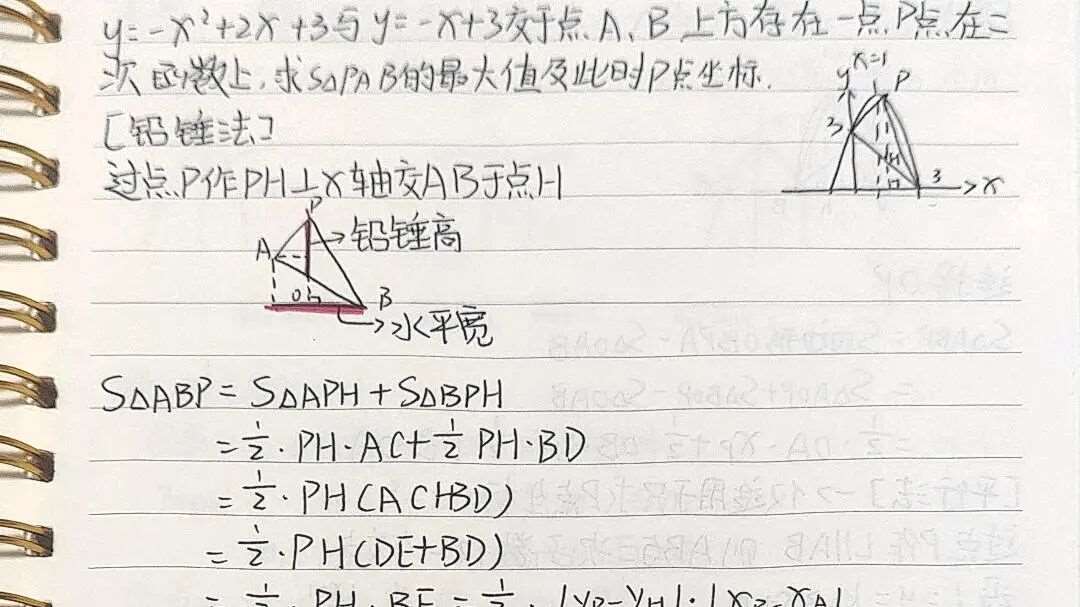 y=-x²+2x+3与y=-x+3交于点A、B上方存在一点P,P点在二
次函数上,求S△PAB的最大值及此时P点坐标.
[铅锤法]
过点P作PH⊥x轴交AB于点H
y
x=1
P
3
H
3
x
P
铅锤高
A
B
水平宽
S△ABP=S△APH+S△BPH
=1/2·PH·AC+1/2 PH·BD
=1/2·PH(AC+BD)
=1/2·PH(DE+BD)
=1/2·PH·BE=1/2·|yP-yH|·|xB-xA|